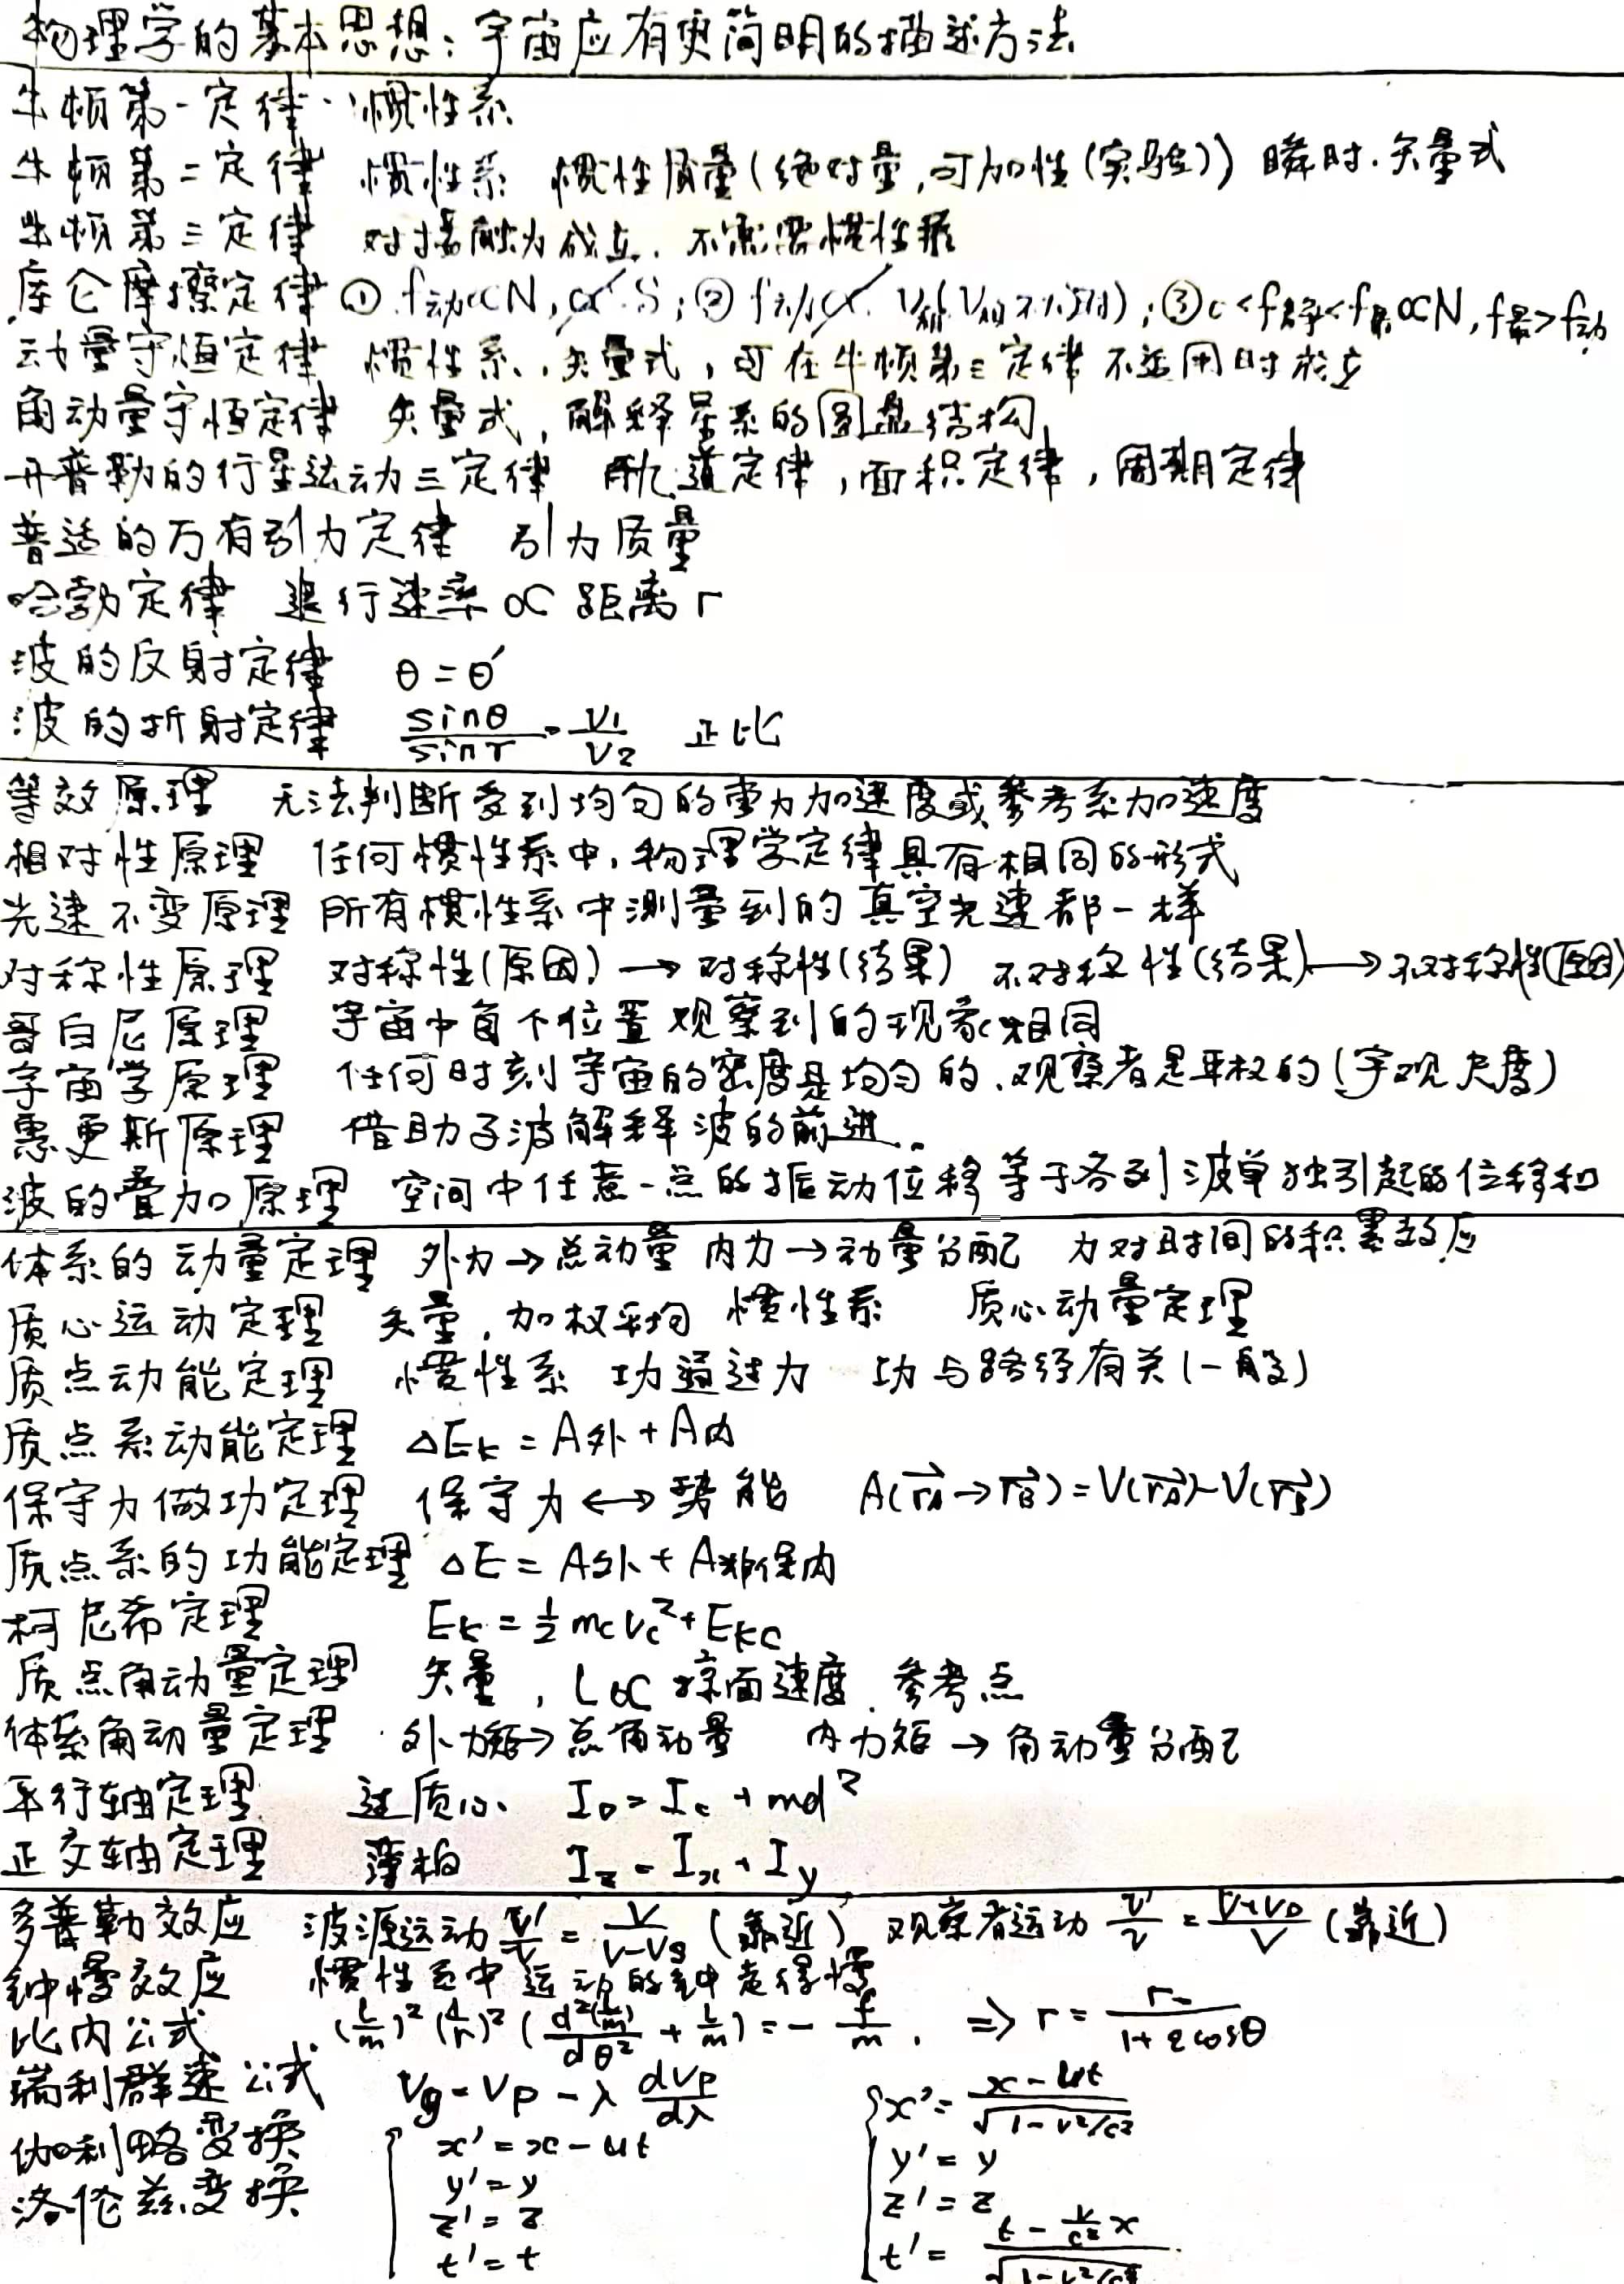 物理学的基本思想：宇宙应有更简明的描述方法
牛顿第一定律 惯性系
牛顿第二定律 惯性系 惯性质量(绝对量,可加性(实验)) 瞬时.矢量式
牛顿第三定律 对接触力成立.不需要惯性系
库仑摩擦定律 ① f动∝N, ∝̸ S; ② f动∝̸ V相(V相不小时); ③ 0<f静<f最∝N, f最>f动
动量守恒定律 惯性系,矢量式,可在牛顿第三定律不适用时成立
角动量守恒定律 矢量式,解释星系的圆盘结构
开普勒的行星运动三定律 轨道定律,面积定律,周期定律
普适的万有引力定律 引力质量
哈勃定律 退行速率∝距离r
波的反射定律 θ=θ'
波的折射定律 sinθ/sinr=V1/V2 正比
等效原理 无法判断受到均匀的重力加速度或参考系加速度
相对性原理 任何惯性系中,物理学定律具有相同的形式
光速不变原理 所有惯性系中测量到的真空光速都一样
对称性原理 对称性(原因)→对称性(结果) 不对称性(结果)→不对称性(原因)
哥白尼原理 宇宙中每个位置观察到的现象相同
宇宙学原理 任何时刻宇宙的密度是均匀的.观察者是平权的(宇观尺度)
惠更斯原理 借助子波解释波的前进.
波的叠加原理 空间中任意一点的振动位移等于各列波单独引起的位移和
体系的动量定理 外力→总动量 内力→动量分配 力对时间的积累效应
质心运动定理 矢量,加权平均 惯性系 质心动量定理
质点动能定理 惯性系 功通过力 功与路径有关(一般)
质点系动能定理 ΔEk=A外+A内
保守力做功定理 保守力↔势能 A(rA→rB)=V(rA)-V(rB)
质点系的功能定理 ΔE=A外+A非保内
柯尼希定理 Ek=½mcvc²+Ekc
质点角动量定理 矢量,L∝掠面速度.参考点
体系角动量定理 外力矩→总角动量 内力矩→角动量分配
平行轴定理 过质心、 Io=Ic+md²
正交轴定理 薄板 Iz=Ix+Iy
多普勒效应 波源运动 ν'/ν=V/(V-Vs)(靠近) 观察者运动 ν'/ν=(V+VD)/V(靠近)
钟慢效应 惯性系中运动的钟走得慢
比内公式 (L/m)²(1/r)²(d²(1/r)/dθ²+1/r)=-f/m. ⇒ r=r₀/(1+εcosθ)
瑞利群速公式 Vg=Vp-λ dVp/dλ
伽利略变换 { x'=x-ut
y'=y
z'=z
t'=t
洛伦兹变换 { x'=(x-ut)/√(1-v²/c²)
y'=y
z'=z
t'=(t-v/c² x)/√(1-v²/c²)